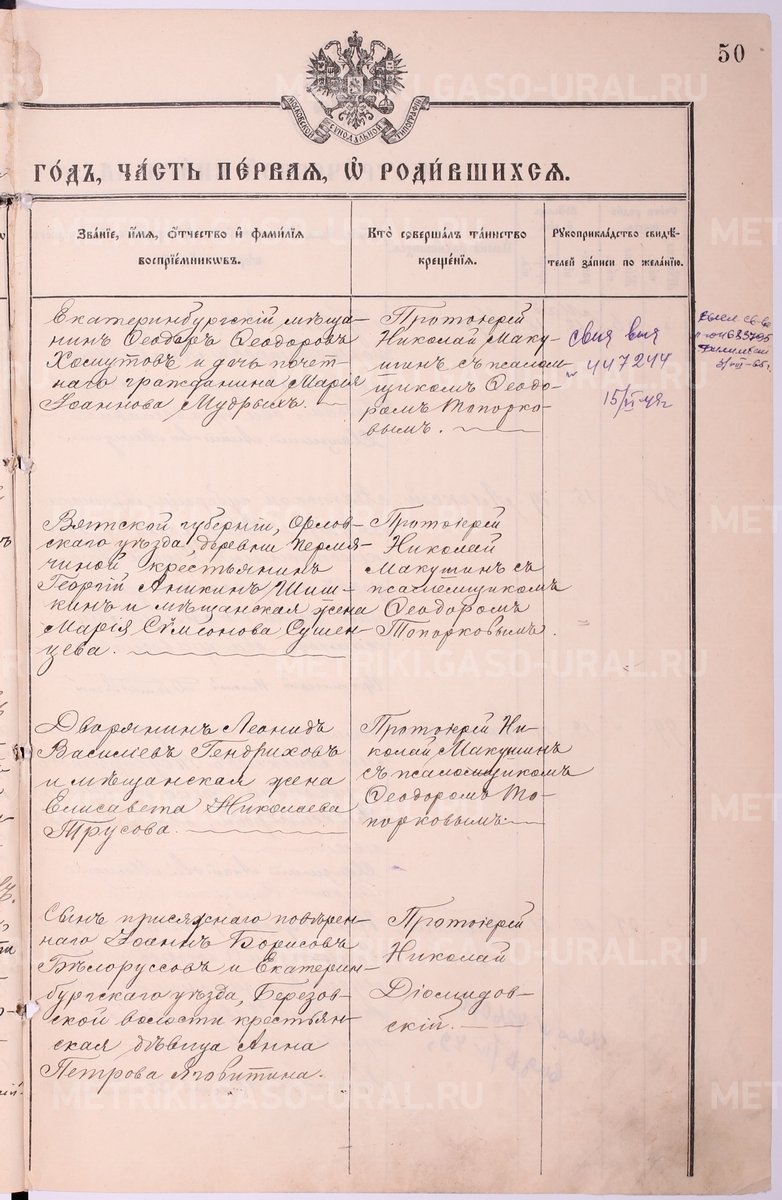 50
МОСКОВСКОЙ СѴНОДАЛЬНОЙ ТИПОГРАФІИ
ГО́ДЪ, ЧА́СТЬ ПЕ́РВАЯ, Ѡ҆ РОДИ́ВШИХСЯ.
Зва́нїе, и҆́мя, ѻ҆́тчество и҆ фами́лїя
воспрїе́мникѡвъ.
Кто̀ соверша́лъ та́инство
креще́нїя.
Рꙋкоприкла́дство свидѣ́-
телей за́писи по жела́нїю.
Екатеринбургскій мѣща-
нинъ Ѳеодоръ Ѳеодоровъ
Хомутовъ и дочь почет-
наго гражданина Марія
Іоаннова Мудрыхъ.
Протоіерей
Николай Маку-
шинъ съ псалом-
щикомъ Ѳеодо-
ромъ Топорко-
вымъ.
447244
Вятской губерніи, Орлов-
скаго уѣзда, деревни Пермя-
чиной крестьянинъ
Георгій Аникинъ Шиш-
кинъ и мѣщанская жена
Марія Сѵмеонова Сушен-
цева.
Протоіерей
Николай
Макушинъ съ
псаломщикомъ
Ѳеодоромъ
Топорковымъ.
Дворянинъ Леонидъ
Василіевъ Гендриховъ
и мѣщанская жена
Елисавета Николаева
Трусова.
Протоіерей Ни-
колай Макушинъ
съ псаломщикомъ
Ѳеодоромъ То-
порковымъ.
Сынъ присяжнаго повѣрен-
наго Іоаннъ Борисовъ
Бѣлоруссовъ и Екатерин-
бургскаго уѣзда, Березов-
ской волости крестьян-
ская дѣвица Анна
Петрова Яговитина.
Протоіерей
Николай
Діомидов-
скій.
METRIKI.GASO-URAL.RU